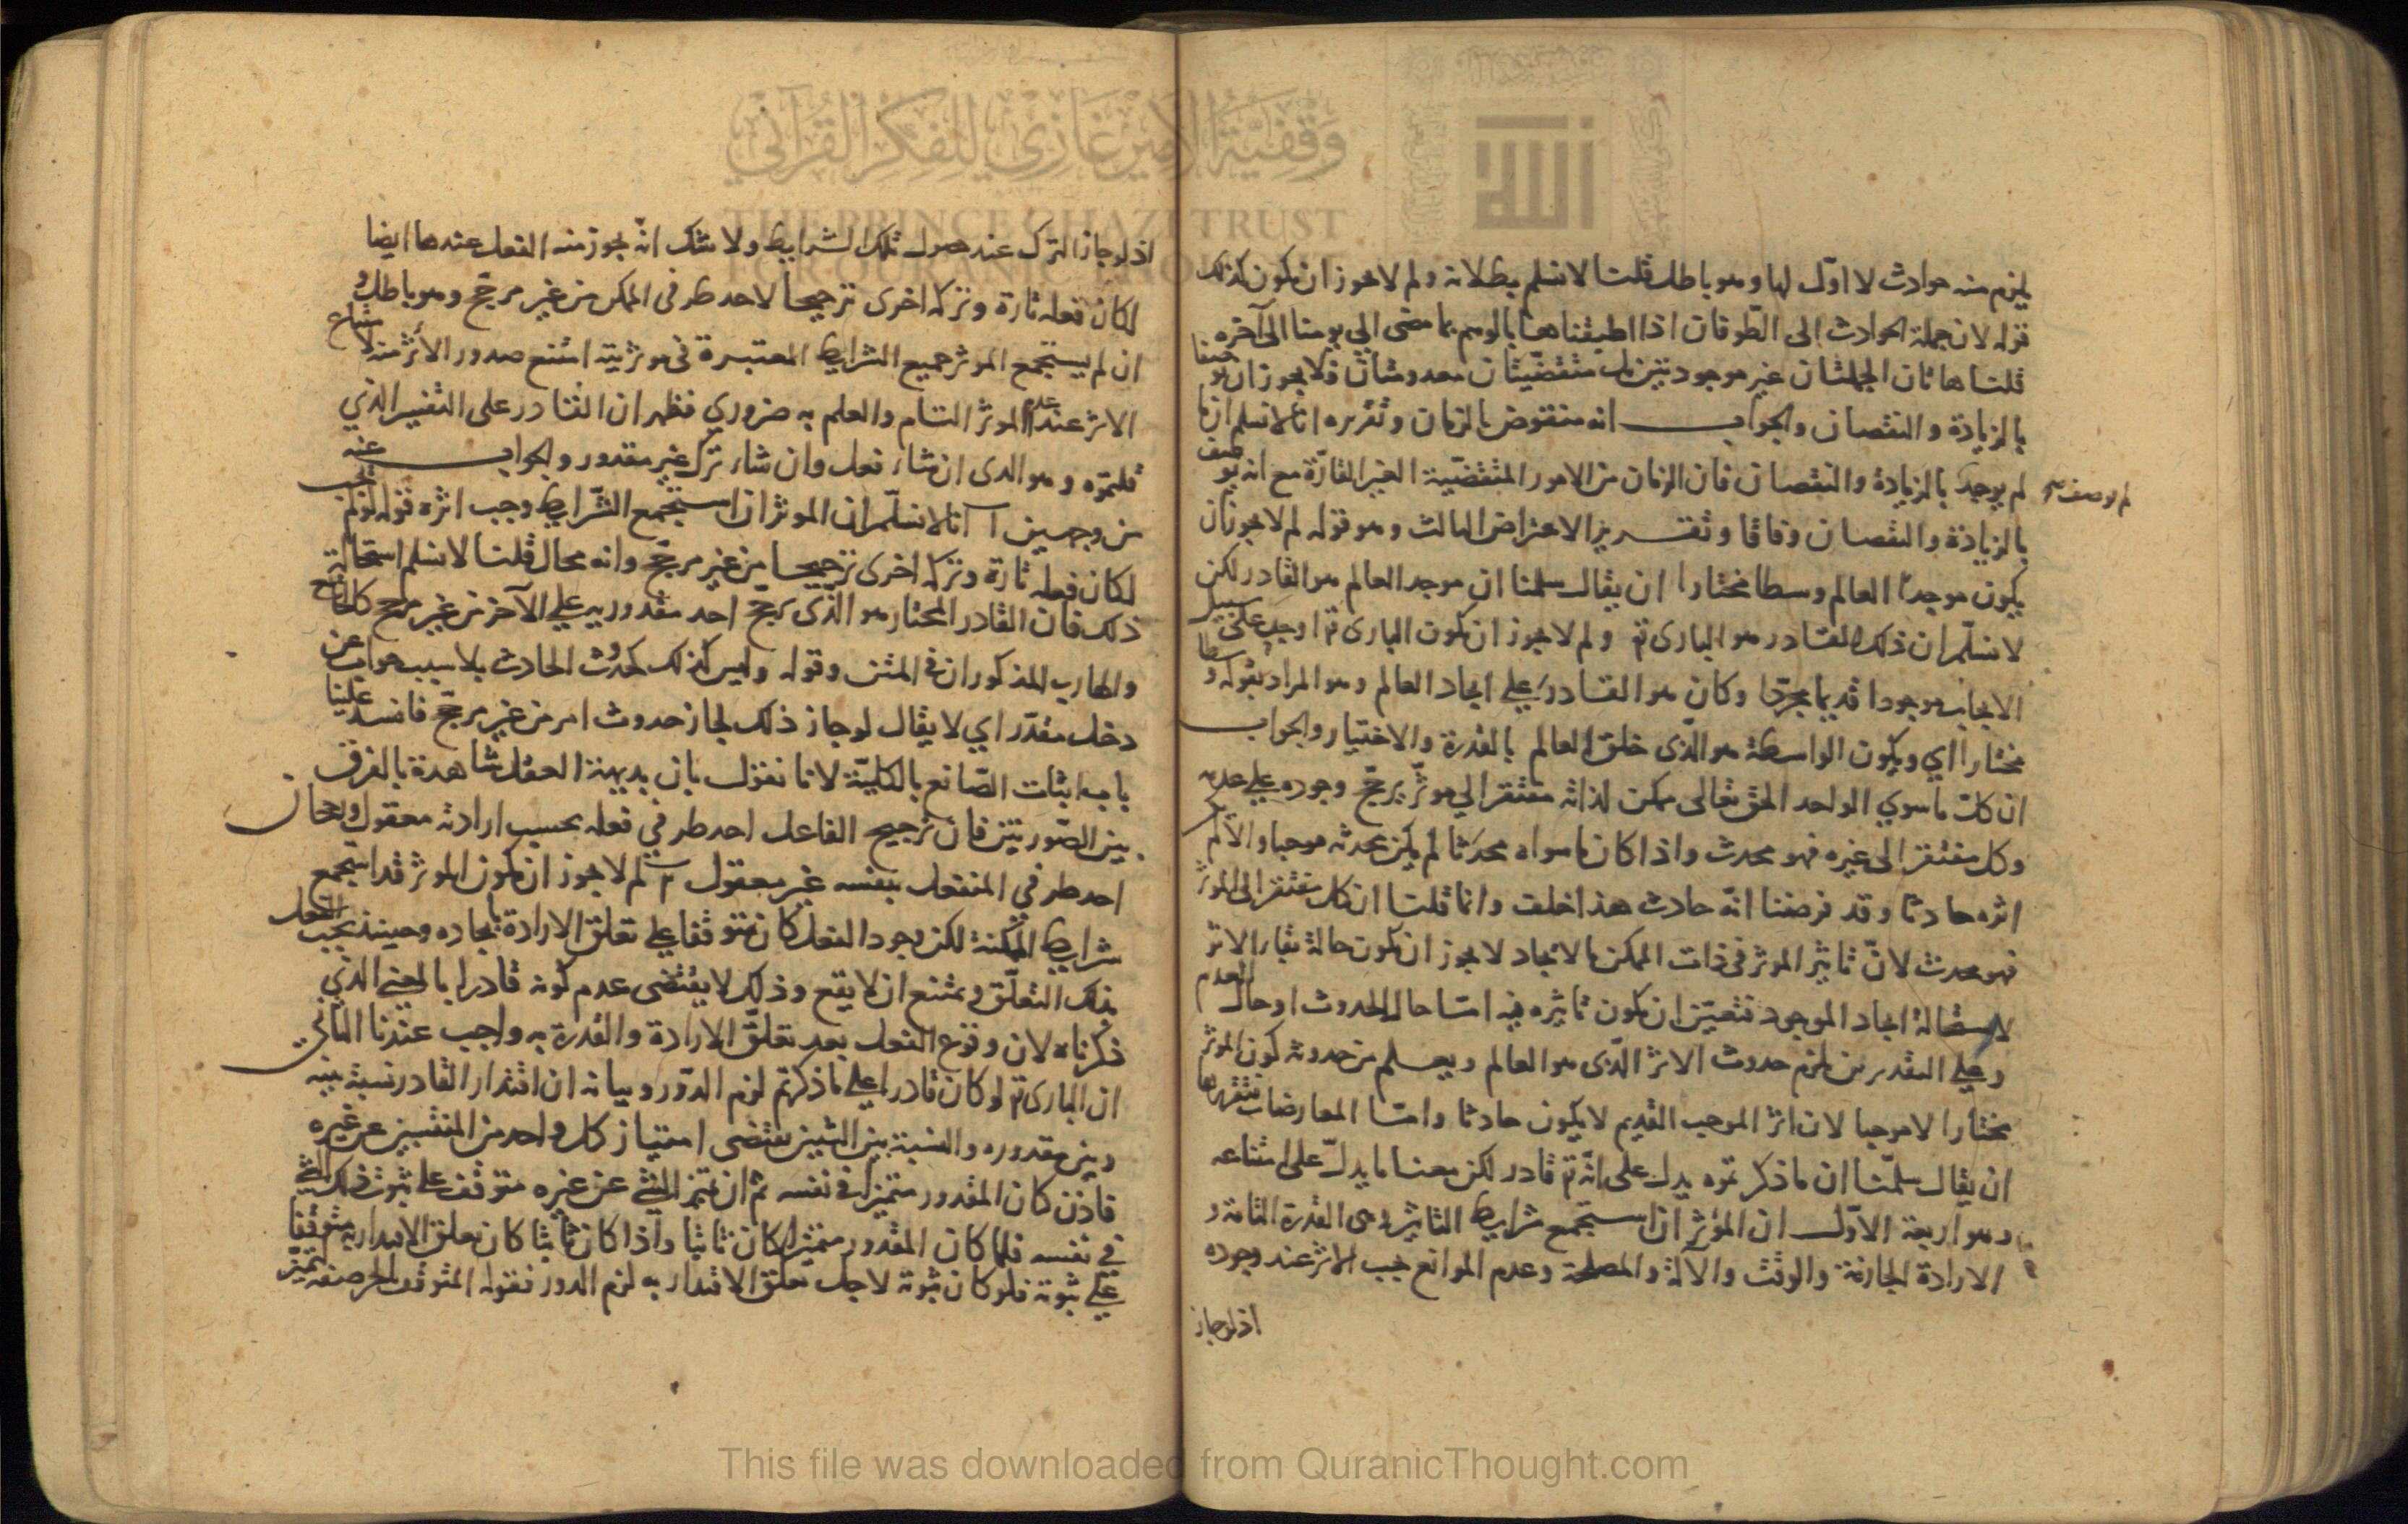 يلزم منه حوادث لا اوّل لها وهو باطل قلنا لا نسلم بطلانه ولم لا يجوز ان يكون كذلك
قوله لان جملة الحوادث الى الطوفان اذا اطبقناها بالوهم بما مضى الى يومنا الى آخره
قلنا هاتان الجملتان غير موجودتين بل متقضيتان معدومتان فلا يجوز ان يوصفا
بالزيادة والنقصان والجواب انه منقوض بالزمان وتقريره انا لا نسلم ان ما
لم يوجد بالزيادة والنقصان فان الزمان من الامور المتقضيّة الغير القارّة مع انه يوصف
لم يوصف
بالزيادة والنقصان وفاقا وتقرير الاعتراض الثالث وهو قوله لم لا يجوز ان
يكون موجد العالم وسطا مختارا ان يقال سلمنا ان موجد العالم هو القادر لكن
لا نسلّم ان ذلك القادر هو البارى تع ولم لا يجوز ان يكون البارى تع اوجد على سبيل
الايجاب موجودا قديما مجردا وكان هو القادر على ايجاد العالم وهو المراد بقوله وسطا
مختارا اي ويكون الواسطة هو الّذى خلق العالم بالقدرة والاختيار والجواب
ان كل ما سوي الواحد الحق تعالى ممكن لذاته مفتقر الي موثر يرجّح وجوده علي عدمه
وكل مفتقر الى غيره فهو محدث واذا كان ما سواه محدثا لم يكن محدثه موجبا والا لم يكن
اثره حادثا وقد فرضنا انّه حادث هذا خلف وانما قلنا ان كل مفتقر الى الموثر
فهو محدث لانّ تاثير الموثر فى ذات الممكن بالايجاد لا يجوز ان يكون حالة بقاء الاثر
لاستحالة ايجاد الموجود فتعيّن ان يكون تاثيره فيه امّا حال الحدوث او حال العدم
وعلي التقديرين يلزم حدوث الاثر الّذى هو العالم ويعلم من حدوثه كون الموثر
مختارا لا موجبا لان اثر الموجب القديم لا يكون حادثا وامّا المعارضات فتقريرها
ان يقال سلمّنا ان ما ذكرتموه يدل على انّه تع قادر لكن معنا ما يدلّ على امتناعه
وهو اربعة الاوّل ان المؤثر ان استجمع شرايط التاثير وهى القدرة التامة و
الارادة الجازمة والوقت والآلة والمصلحة وعدم الموانع يجب الاثر عند وجوده
اذ لو جاز
اذ لو جاز الترك عند حصول تلك الشرايط ولا شك انّه يجوز منه الفعل عندها ايضا
لكان فعله تارة وتركه اخرى ترجيحا لاحد طرفى الممكن من غير مرجّح وهو باطل و
ان لم يستجمع الموثر جميع الشرايط المعتبرة في موثريته امتنع صدور الأثر منه لامتناع
الاثر عند عدم الموثر التام والعلم به ضروري فظهر ان القادر على التفسير الذي
قلتموه وهو الذى ان شاء فعل وان شاء ترك غير مقدور والجواب عنه
من وجهين آ انا لا نسلّم ان الموثر ان استجمع الشّرايط وجب اثره قوله لو لم يجب
لكان فعله تارة وتركه اخرى ترجيحا من غير مرجّح وانه محال قلنا لا نسلم استحالة
ذلك فان القادر المختار هو الّذى يرجّح احد مقدوريه علي الآخر من غير مرجح كالجائع
والهارب المذكوران في المتن وقوله وليس كذلك كحدوث الحادث بلا سبب جواب عن
دخل مقدّر اي لا يقال لو جاز ذلك لجاز حدوث امر من غير مرجّح فانسد علينا
باب اثبات الصّانع بالكليّة لانا نقول بان بديهة العقل شاهدة بالفرق
بين الصّورتين فان ترجيح الفاعل احد طرفي فعله بحسب ارادته معقول ورجحان
احد طرفي المنفعل بنفسه غير معقول لم لا يجوز ان يكون الموثر قد استجمع
شرايط المكنة لكن وجود الفعل كان متوقفا علي تعلق الارادة بايجاده وحينئذ يجب الفعل
بذلك التعلّق ويمتنع ان لا يقع وذلك لا يقتضى عدم كونه قادرا بالمعنى الذي
ذكرناه لان وقوع الفعل بعد تعلّق الارادة والقدرة به واجب عندنا الثاني
ان البارى تع لو كان قادرا علي ما ذكرتم لزم الدّور وبيانه ان اقتدار القادر نسبة بينه
وبين مقدوره والنسبة بين الشيئين يقتضى امتياز كل واحد من المنتسبين عن غيره
فاذن كان المقدور متميزا في نفسه ثم ان تميز الشئ عن غيره متوقف علي ثبوت ذلك الشئ
في نفسه فلما كان المقدور متميزا كان ثابتا واذا كان ثابتا كان تعلق الاقتدار به متوقفا
علي ثبوته فلو كان ثبوته لاجل تعلق الاقتدار به لزم الدور فقوله المتوقف
وقفية الأمير غازي للفكر القرآني
THE PRINCE GHAZI TRUST
FOR QURANIC THOUGHT
This file was downloaded from QuranicThought.com